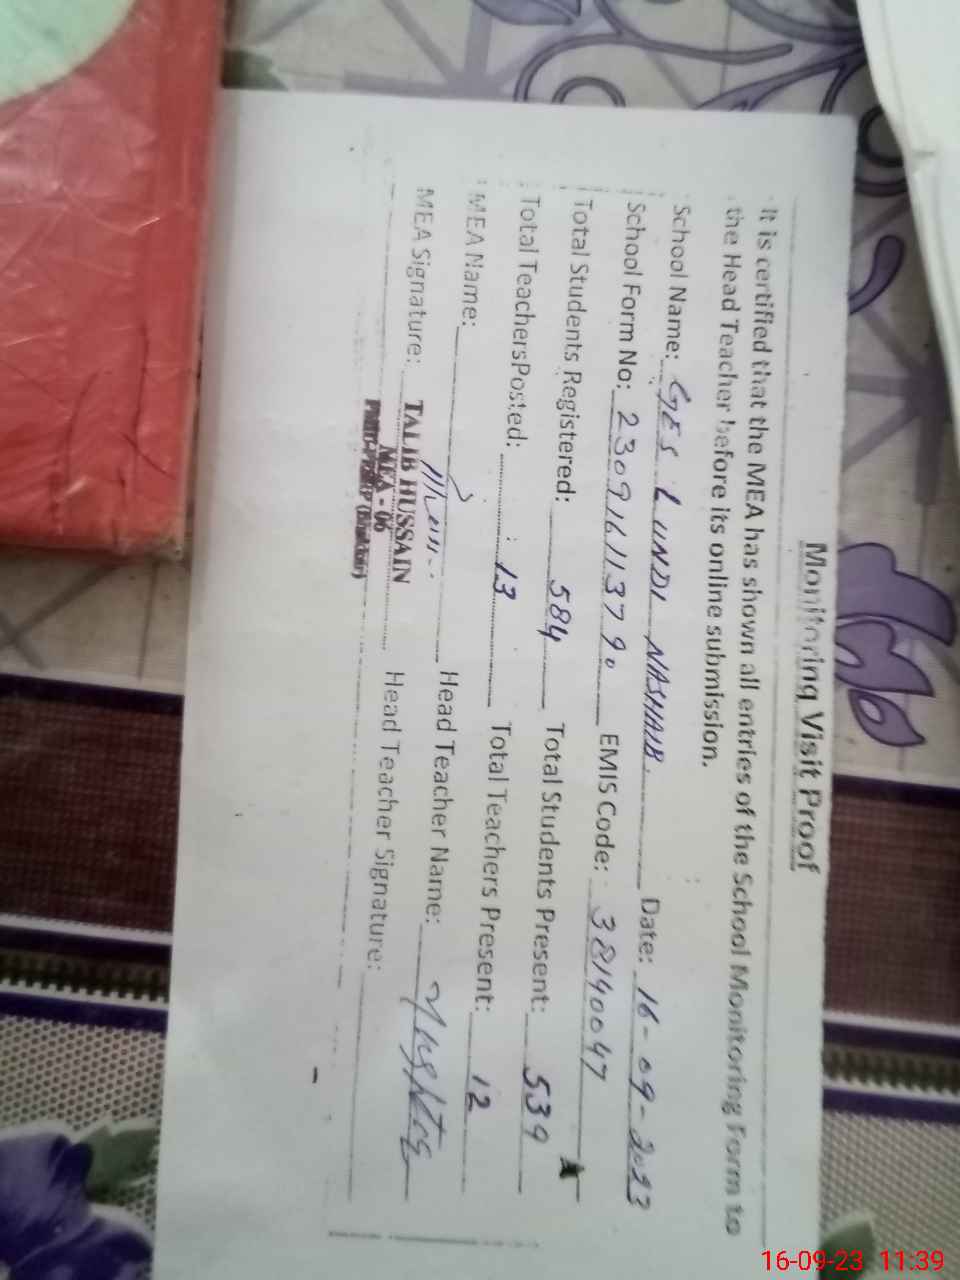 Monitoring Visit Proof
It is certified that the MEA has shown all entries of the School Monitoring Form to
the Head Teacher before its online submission.
School Name: GES LUNDI NASHAIB. Date: 16-09-2023
School Form No: 230916113790 EMIS Code: 38140047
Total Students Registered: 584 Total Students Present: 539
Total TeachersPosted: 13 Total Teachers Present: 12
MEA Name: Head Teacher Name:
MEA Signature: TALIB HUSSAIN Head Teacher Signature:
MEA - 06
16-09-23 11:39